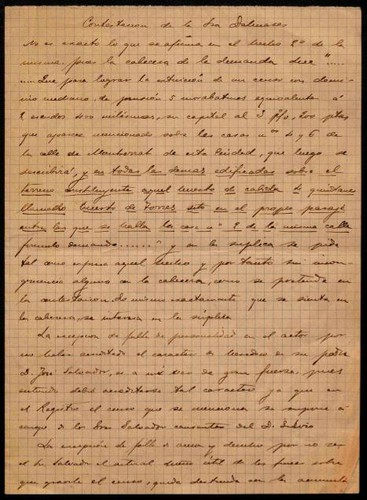 Contestacion de la Sra Dalmases
No es exacto lo que se afirma en el hecho 2º de la
misma pues la cabecera de la demanda dice "......
.....Que para lograr la extincion de un censo con domi-
nio mediano, de pension 5 morabatines equivalente á
2 escudos 400 milésimas, en capital al 3 p/o, 200 ptas
que aparece mencionado sobre las casas nº 4 y 6 de
la calle de Montserrat de esta Ciudad, que luego se
describirá, y en todas las demas edificadas sobre el
terreno constituyente aquel huerto de
llamado huerto de Torres sito en el propio parage
entre los que se halla la casa nº 2 de la misma calle
formulo demanda......" y en la suplica se pide
tal como expresa aquel hecho y por tanto sin incon-
gruencia alguna con la cabecera, como se pretende en
la contestacion. Lo mismo exactamente que se sienta en
la cabecera, se interesa en la súplica
La excepcion de falta de personalidad en el actor por
no haber acreditado el caracter de heredero de su padre
D. José Salvador, es a mi ver de gran fuerza, pues
entiendo debió acreditarse tal caracter ya que en
el Registro el censo que se menciona se impone á
cargo de los Sres Salvador
La excepcion de falta de accion y derecho por no ser
el Sr Salvador el actual dueño útil de las fincas sobre
que gravita el censo, queda destruida con la